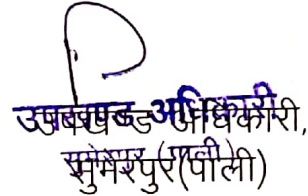 उपखण्ड अधिकारी,
सुमेरपुर(पाली)